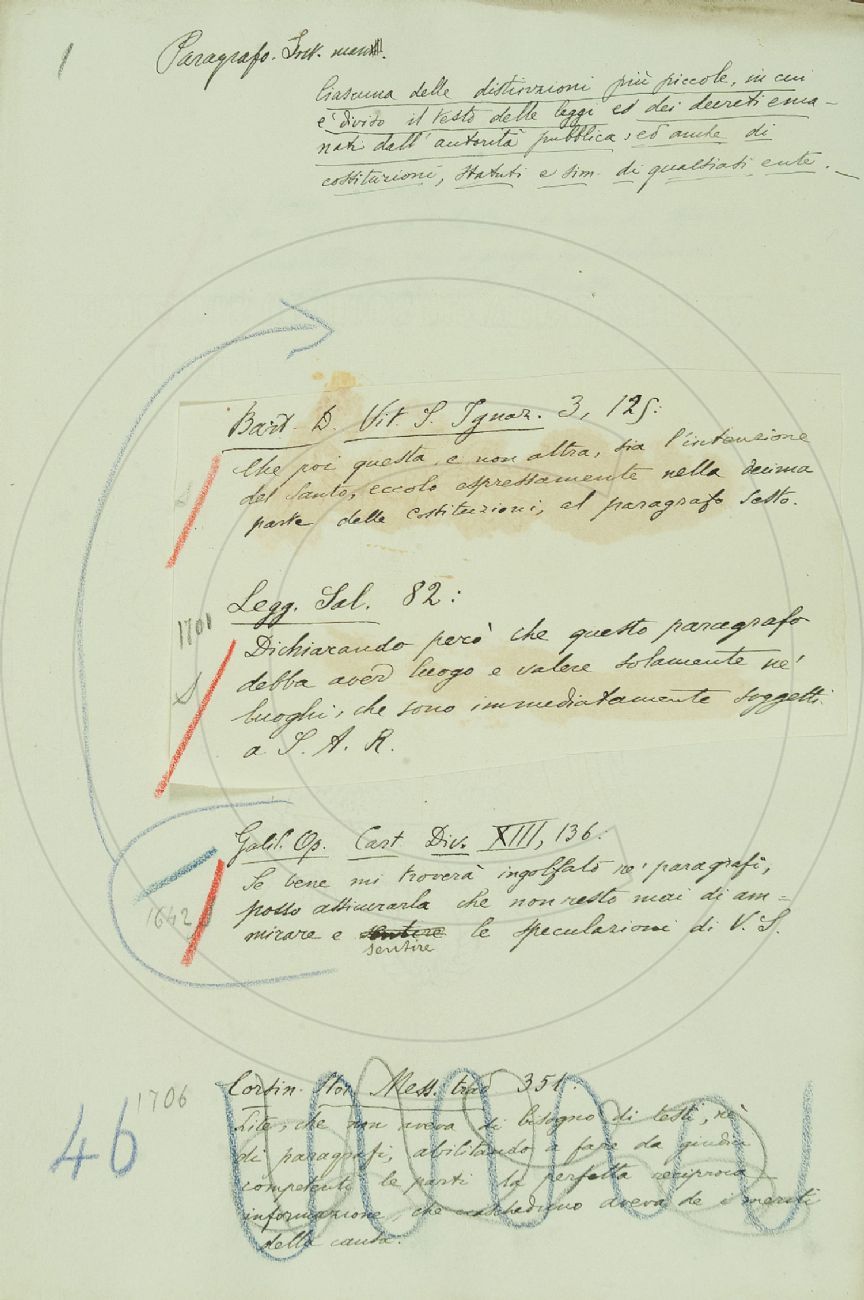 1
Paragrafo. Sost. mas.
Ciascuna delle distinzioni più piccole, in cui
è diviso il testo delle leggi ed dei decreti ema-
nati dall'autorità pubblica, ed anche di
costituzioni, statuti e sim. di qualsiasi ente.
Bart. D. Vit. S. Ignaz. 3, 125:
Che poi questa, e non altra, sia l'intenzione
del Santo, eccolo espressamente nella decima
parte delle costituzioni, al paragrafo sesto.
Legg. Sal. 82:
1701
Dichiarando però che questo paragrafo
debba aver luogo e valere solamente ne'
luoghi, che sono immediatamente soggetti
a S. A. R.
Galil. Op. Cart. Div. XIII, 136:
Se bene mi troverà ingolfato ne' paragrafi,
posso assicurarla che non resto mai di am=
1642
mirare e sentire le speculazioni di V. S.
sentire
Corsin. Stor. Mess. trad 351:
1706
46
Lite, che non aveva di bisogno di testi, nè
di paragrafi, abilitando a fare da giudici
competenti le parti la perfetta reciproca
informazione, che ciascheduno aveva de i meriti
della causa.